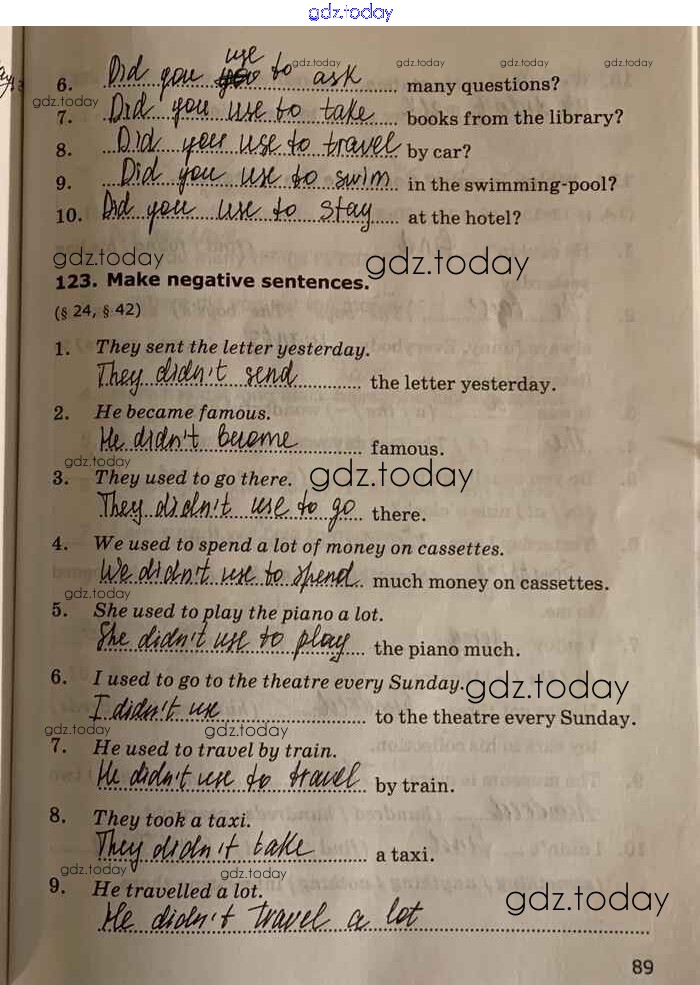 gdz.today
use
6. Did you to ask many questions?
gdz.today gdz.today gdz.today
gdz.today
7. Did you use to take books from the library?
8. Did you use to travel by car?
9. Did you use to swim in the swimming-pool?
10. Did you use to stay at the hotel?
gdz.today gdz.today
123. Make negative sentences.
(§ 24, § 42)
1. They sent the letter yesterday.
They didn't send the letter yesterday.
2. He became famous.
He didn't become famous.
gdz.today
3. They used to go there. gdz.today
They didn't use to go there.
4. We used to spend a lot of money on cassettes.
We didn't use to spend much money on cassettes.
gdz.today
5. She used to play the piano a lot.
She didn't use to play the piano much.
6. I used to go to the theatre every Sunday. gdz.today
I didn't use to the theatre every Sunday.
gdz.today gdz.today
7. He used to travel by train.
He didn't use to travel by train.
8. They took a taxi.
They didn't take a taxi.
gdz.today gdz.today
9. He travelled a lot. gdz.today
He didn't travel a lot
89